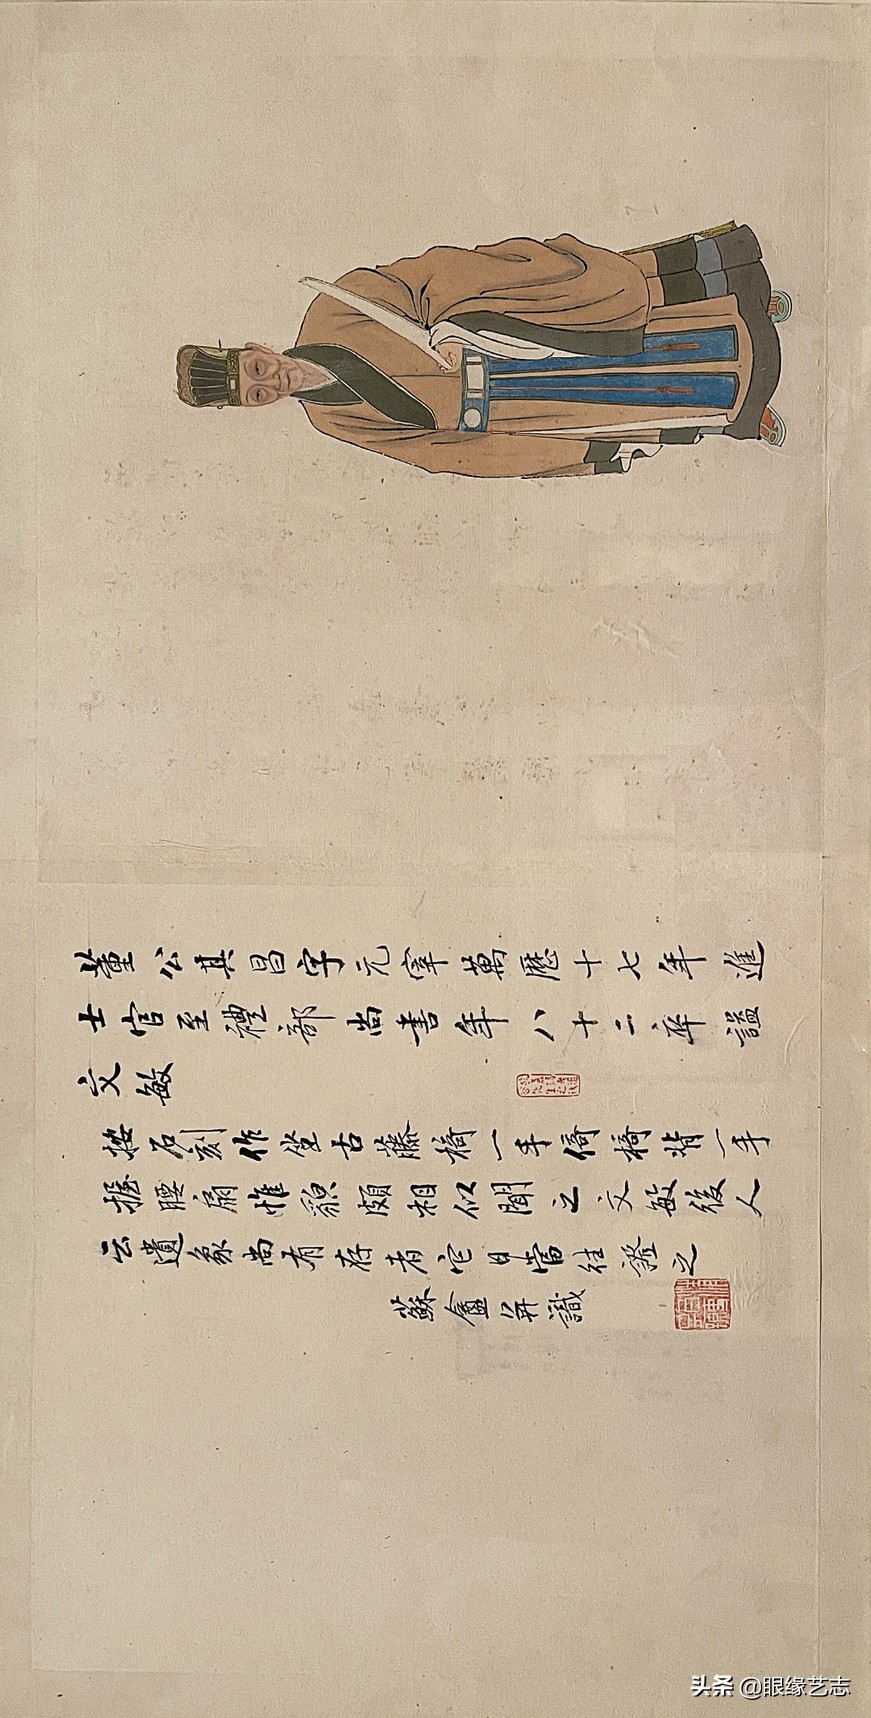 董公其昌字元宰萬歷十七年進
士官至禮部尚書年八十二卒諡
文敏
按石刻作坐古藤椅一手倚椅背一手
握腰扇惟貌頗相似聞之文敏後人
云遺象尚有存者它日當往證之
蘇盦并識
头条 @眼缘艺志